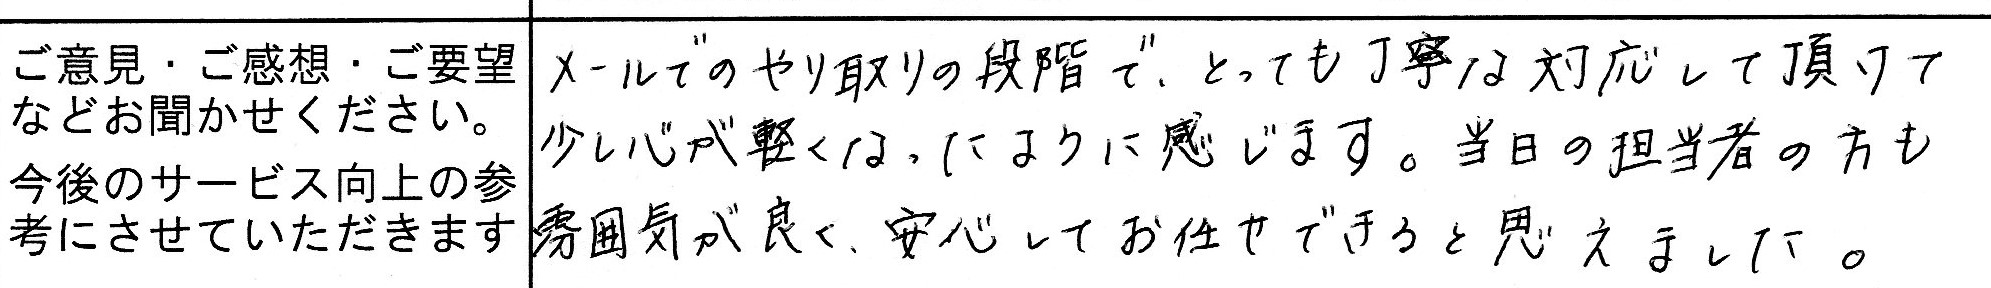 ご意見・ご感想・ご要望
などお聞かせください。
今後のサービス向上の参
考にさせていただきます
メールでのやり取りの段階で、とっても丁寧な対応して頂けて
少し心が軽くなったように感じます。当日の担当者の方も
雰囲気が良く、安心してお任せできると思えました。